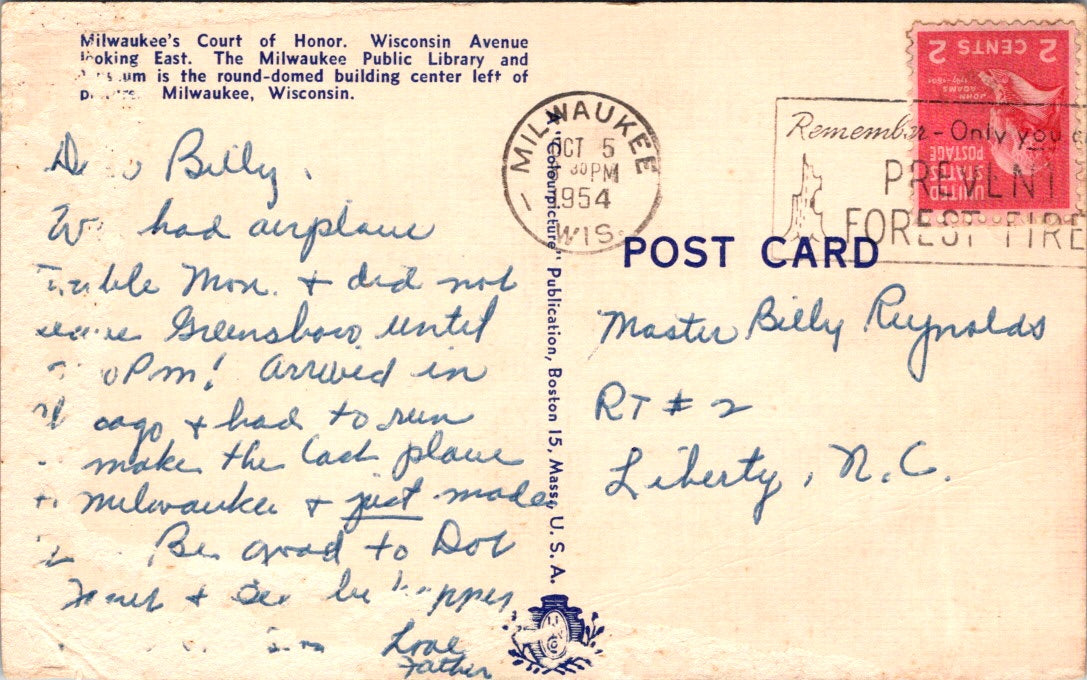 Milwaukee's Court of Honor. Wisconsin Avenue
looking East. The Milwaukee Public Library and
um is the round-domed building center left of
Milwaukee, Wisconsin.
MILWAUKEE
OCT 5
30 PM
1954
WIS.
2 CENTS 2
JOHN
ADAMS
UNITED
STATES
POSTAGE
Remember - Only you
PREVENT
FOREST FIRE
POST CARD
A "Colourpicture" Publication, Boston 15, Mass., U. S. A.
Billy,
had airplane
Mon. + did not
Greensboro until
PM! Arrived in
cago + had to run
make the last plane
Milwaukee + just made
Be good to Dot
+ be
Love
Father
Master Billy Reynolds
RT # 2
Liberty, N.C.